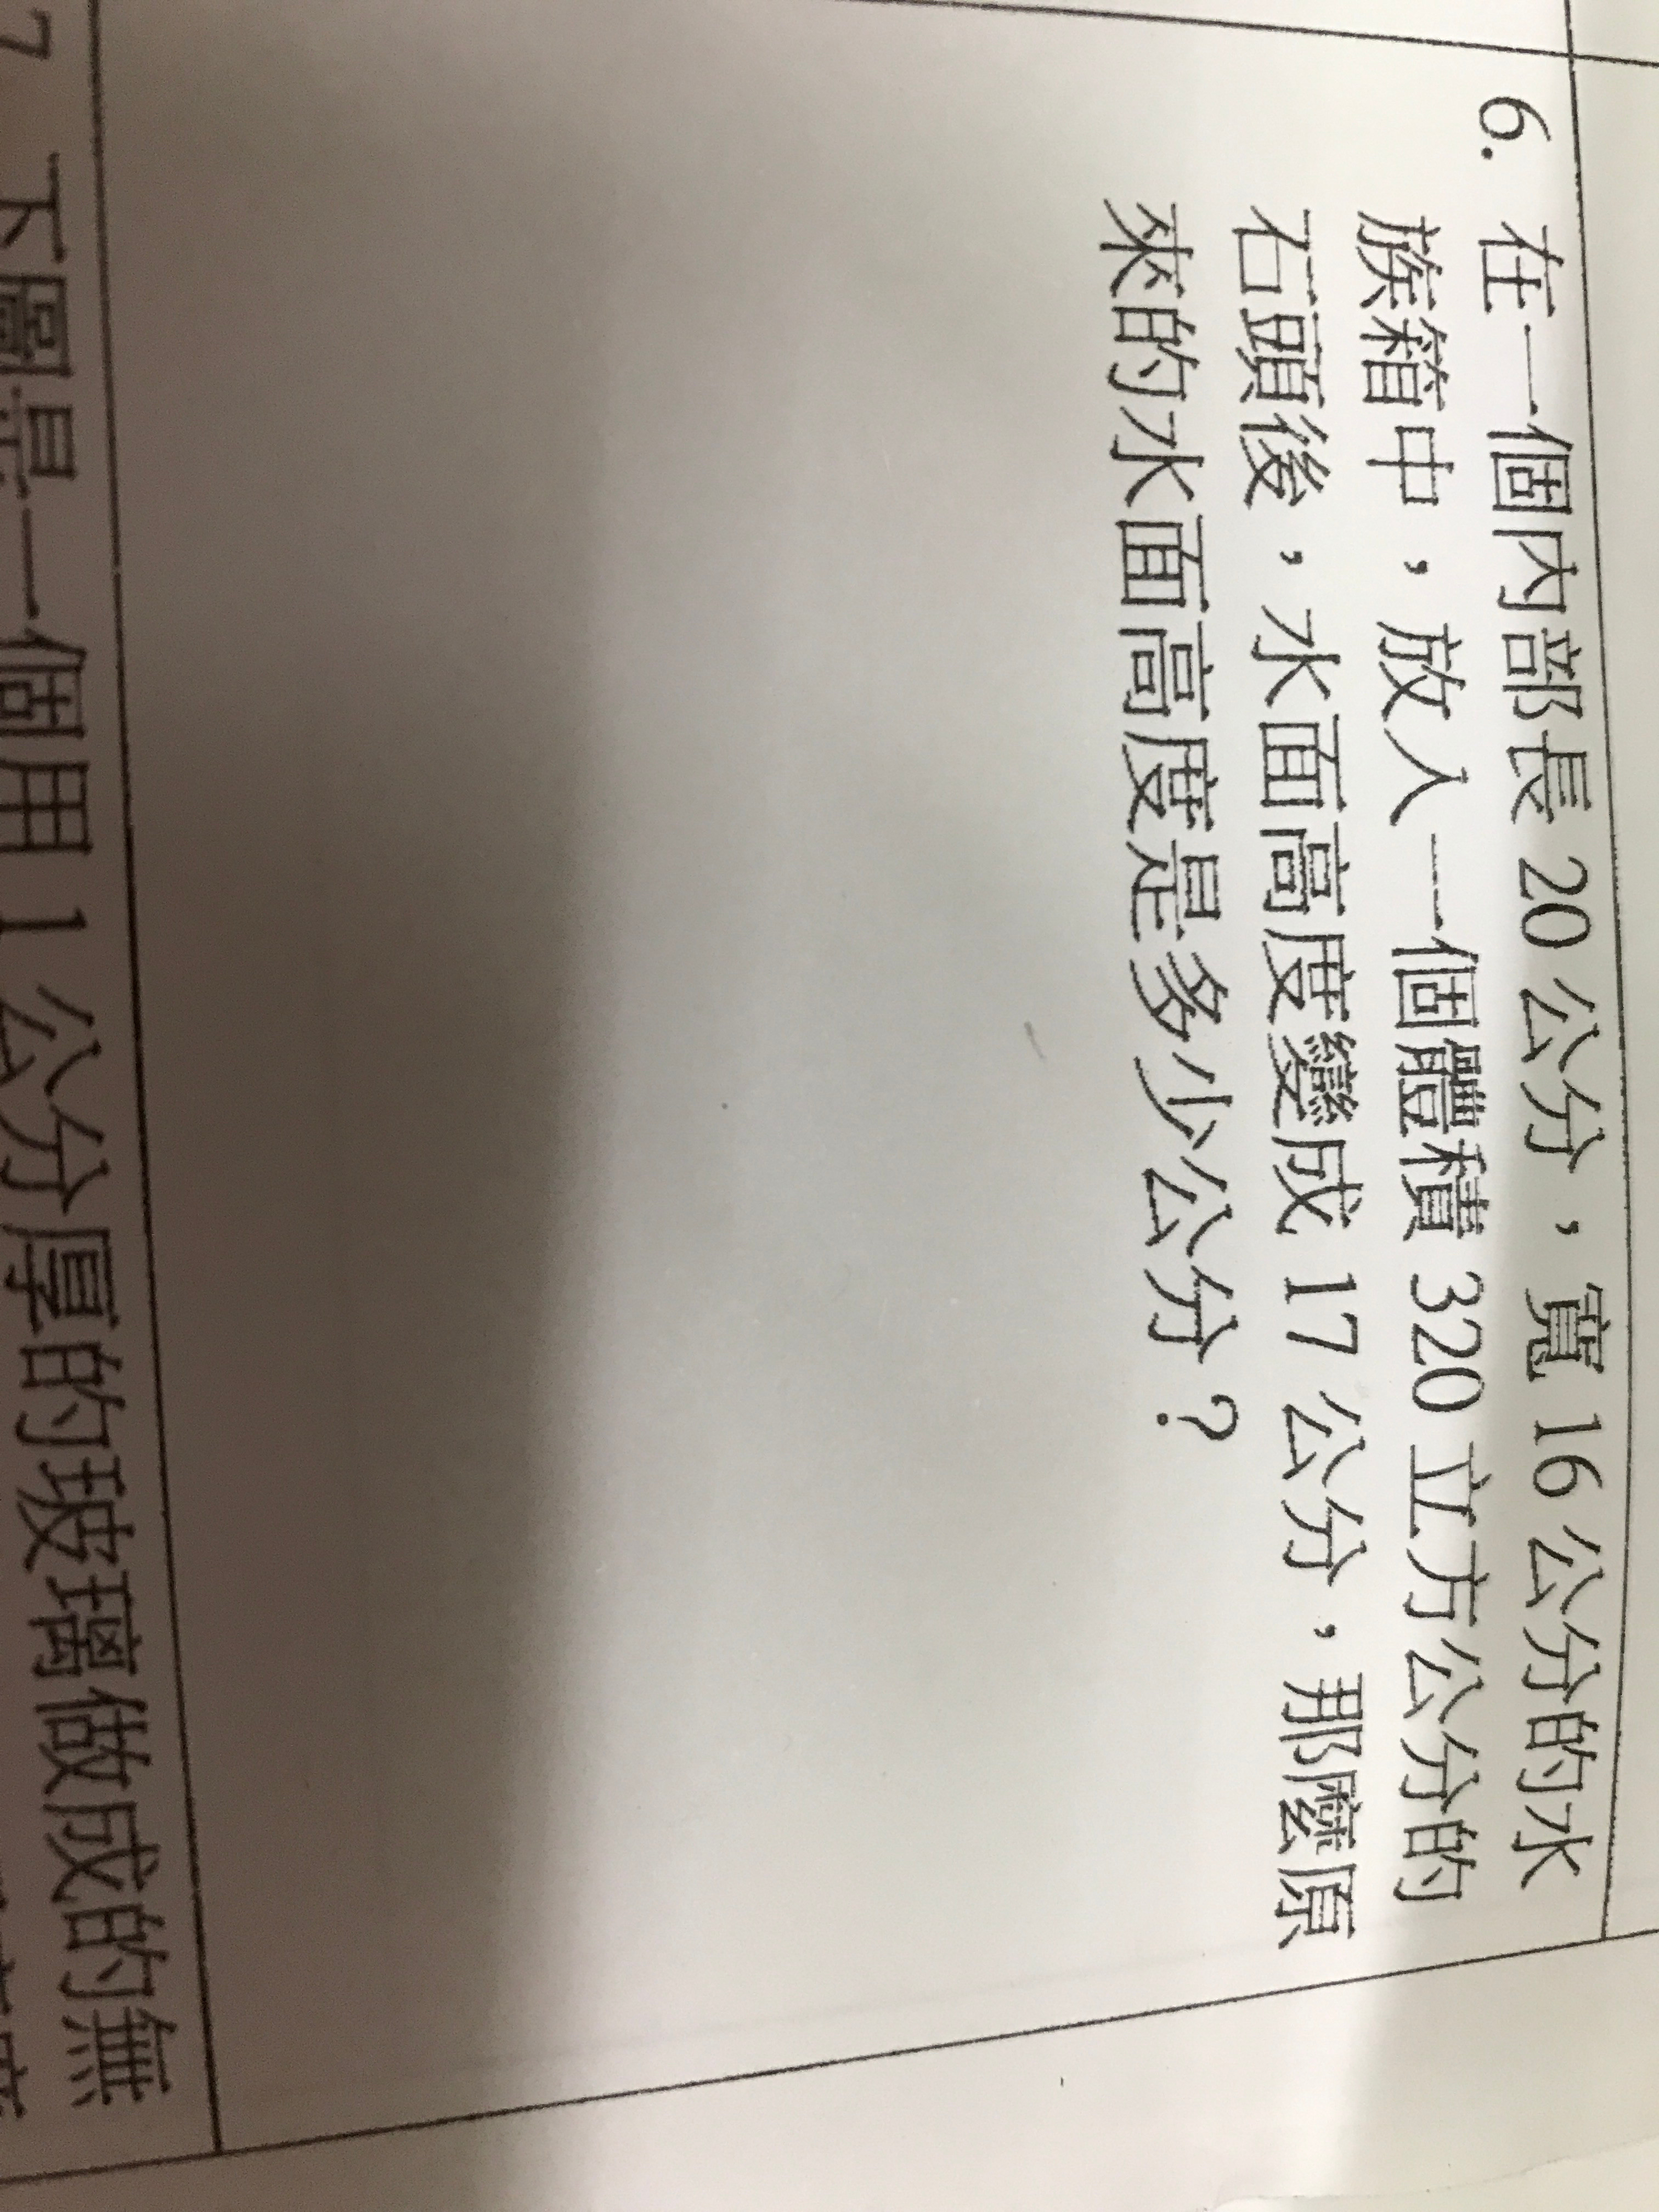 6. 在一個內部長 20 公分，寬 16 公分的水
族箱中，放入一個體積 320 立方公分的
石頭後，水面高度變成 17 公分，那麼原
來的水面高度是多少公分？
7 下圖是一個用 1 公分厚的玻璃做成的無